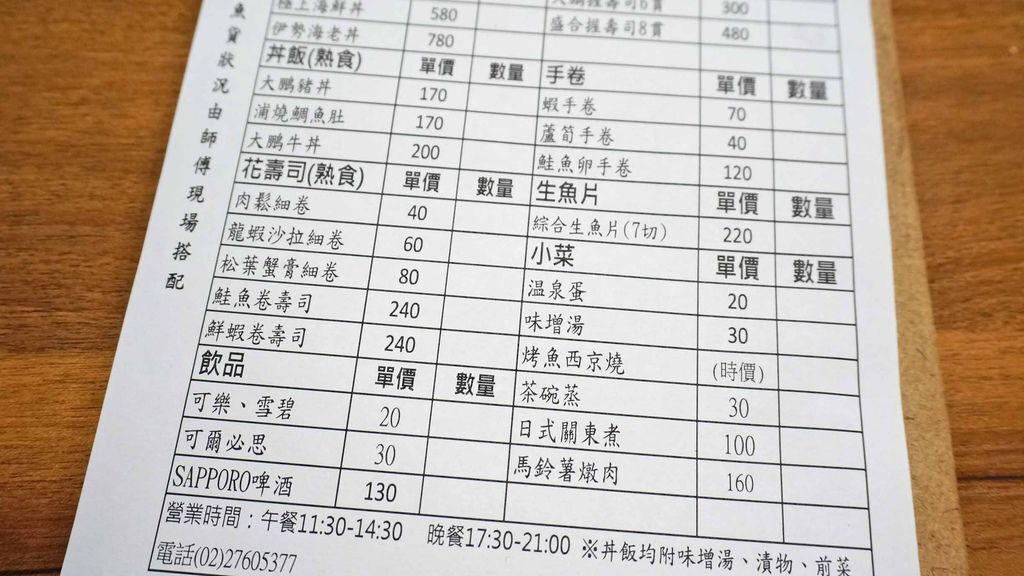 魚貨狀況由師傅現場搭配
極上海鮮丼 580
伊勢海老丼 780
丼飯(熟食) 單價 數量
大鵬豬丼 170
浦燒鯛魚肚 170
大鵬牛丼 200
花壽司(熟食) 單價 數量
肉鬆細卷 40
龍蝦沙拉細卷 60
松葉蟹膏細卷 80
鮭魚卷壽司 240
鮮蝦卷壽司 240
飲品 單價 數量
可樂、雪碧 20
可爾必思 30
SAPPORO啤酒 130
大鵬握壽司6貫 300
盛合握壽司8貫 480
手卷 單價 數量
蝦手卷 70
蘆筍手卷 40
鮭魚卵手卷 120
生魚片 單價 數量
綜合生魚片(7切) 220
小菜 單價 數量
溫泉蛋 20
味增湯 30
烤魚西京燒 (時價)
茶碗蒸 30
日式關東煮 100
馬鈴薯燉肉 160
營業時間：午餐11:30-14:30 晚餐17:30-21:00 ※丼飯均附味增湯、漬物、前菜
電話(02)27605377